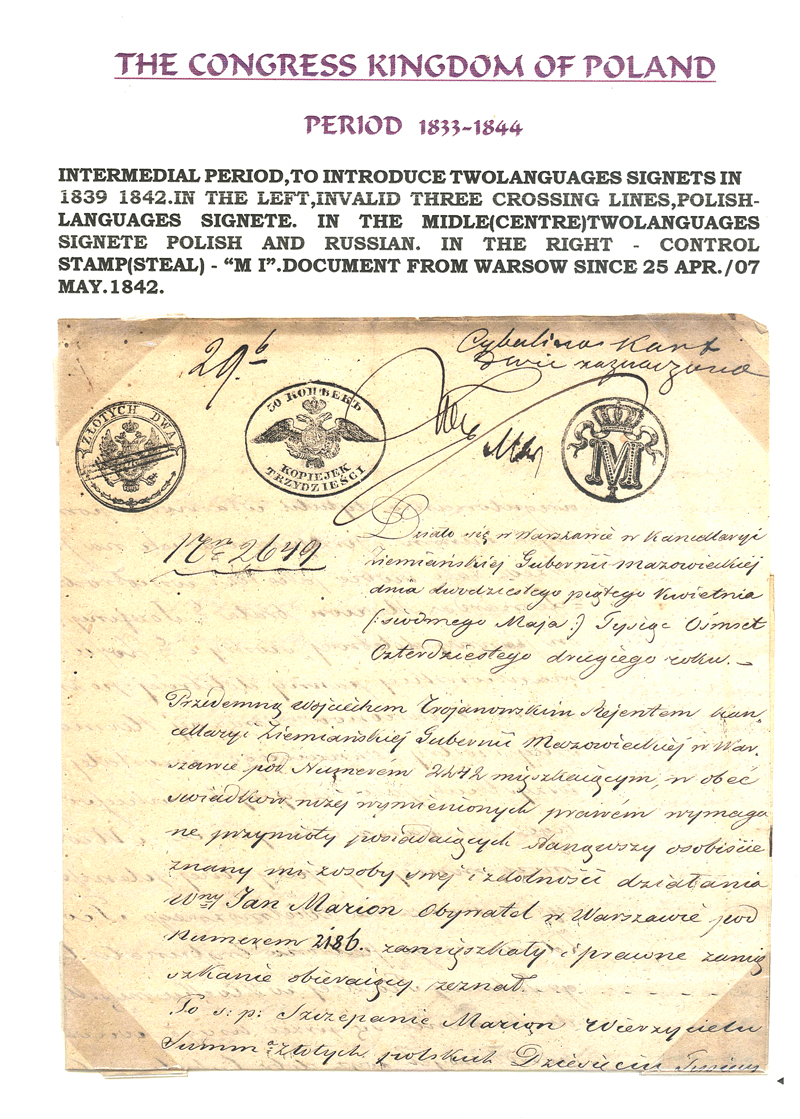 THE CONGRESS KINGDOM OF POLAND
PERIOD 1833-1844
INTERMEDIAL PERIOD,TO INTRODUCE TWOLANGUAGES SIGNETS IN
1839 1842.IN THE LEFT,INVALID THREE CROSSING LINES,POLISH-
LANGUAGES SIGNETE. IN THE MIDLE(CENTRE)TWOLANGUAGES
SIGNETE POLISH AND RUSSIAN. IN THE RIGHT - CONTROL
STAMP(STEAL) - “M I”.DOCUMENT FROM WARSOW SINCE 25 APR./07
MAY.1842.
29.b
Kart
dwie zaznaczono
ZŁOTYCH DWA
30 КОПѢЕКЪ
KOPIEJEK
TRZYDZIEŚCI
M
Nro 2649
Działo się w Warszawie w Kancellaryi
Ziemiańskiej Gubernii Mazowieckiej
dnia dwudziestego piątego Kwietnia
(: siódmego Maja :) Tysiąc Ośmset
Czterdziestego drugiego roku. –
Przedemną Wojciechem Trojanowskim Rejentem Kan-
cellaryi Ziemiańskiej Gubernii Mazowieckiej w War-
szawie pod Numerem 2242 mięszkaiącym, w obec
świadków niżej wymienionych prawem wymaga
ne przymioty posiadaiących stanąwszy osobiście
znany mi z osoby swej i zdolności działania
Wny Jan Marion Obywatel w Warszawie pod
Numerem 2186. zamięszkały i prawne zamię
szkanie obieraiący zeznał.
To s: p: Szczepanie Marion Wierzycielu
Summ złotych polskich Dziesięciu Tysięcy